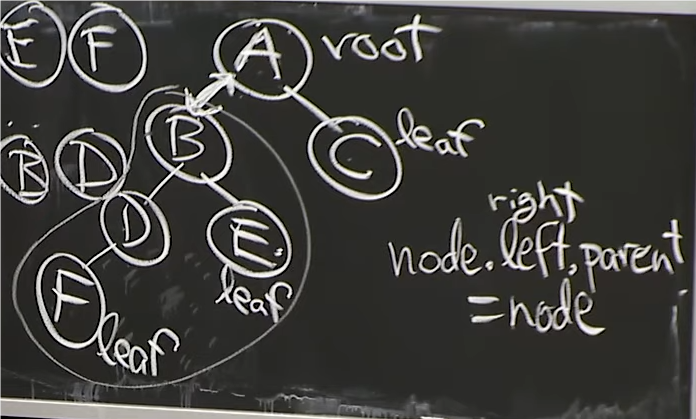 E F
A root
B
C leaf
B D
D
E
F
leaf
leaf
right
node.left.parent
=node